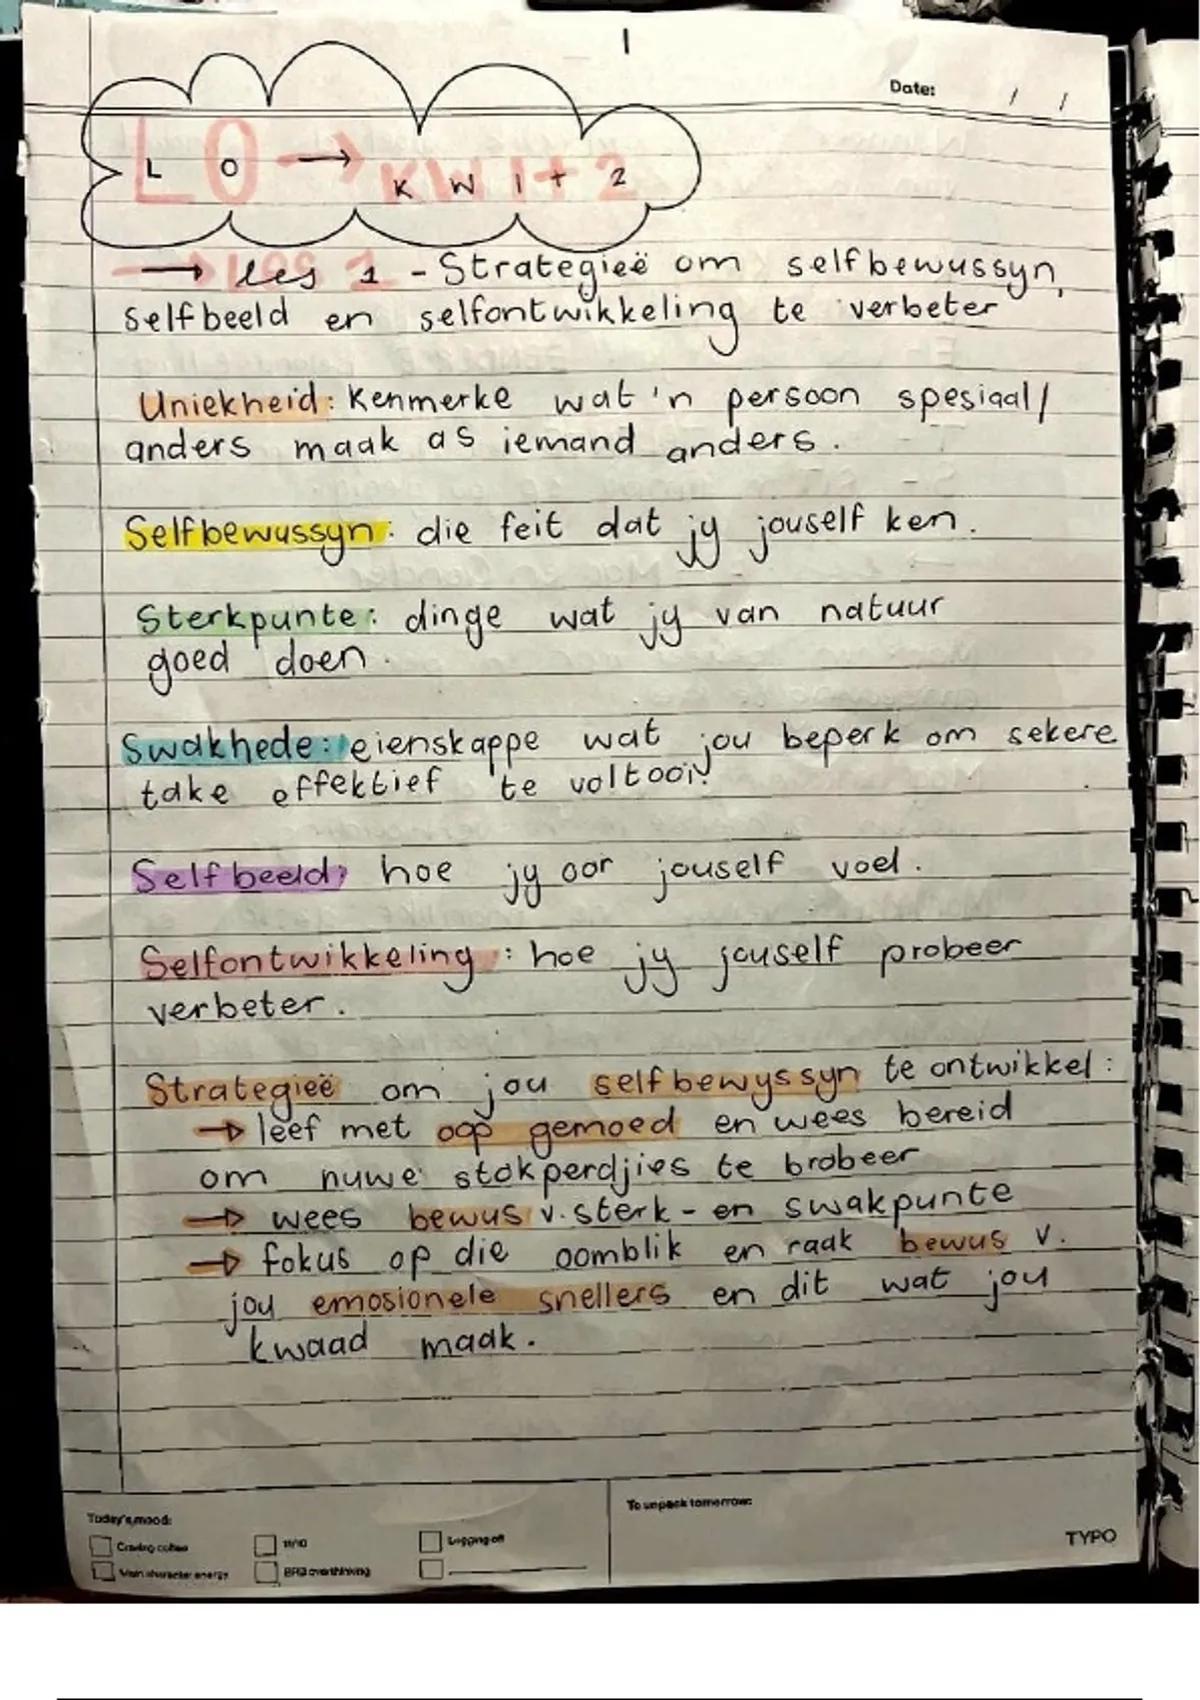 1
Date: / /
L O → K W 1 + 2
→ les 1 - Strategieë om selfbewussyn,
selfbeeld en selfontwikkeling te verbeter
Uniekheid: Kenmerke wat 'n persoon spesiaal/
anders maak as iemand anders.
Selfbewussyn: die feit dat jy jouself ken.
Sterkpunte: dinge wat jy van natuur
goed doen.
Swakhede: eienskappe wat jou beperk om sekere
take effektief te voltooi.
Selfbeeld: hoe jy oor jouself voel.
Selfontwikkeling: hoe jy jouself probeer
verbeter.
Strategieë om jou selfbewyssyn te ontwikkel:
→ leef met oop gemoed en wees bereid
om nuwe stokperdjies te probeer
→ wees bewus v. sterk- en swakpunte
→ fokus op die oomblik en raak bewus v.
jou emosionele snellers en dit wat jou
kwaad maak.
Today's mood:
Craving coffee
11/10
Logging off
Main character energy
BRB overthinking
To unpack tomorrow:
TYPO